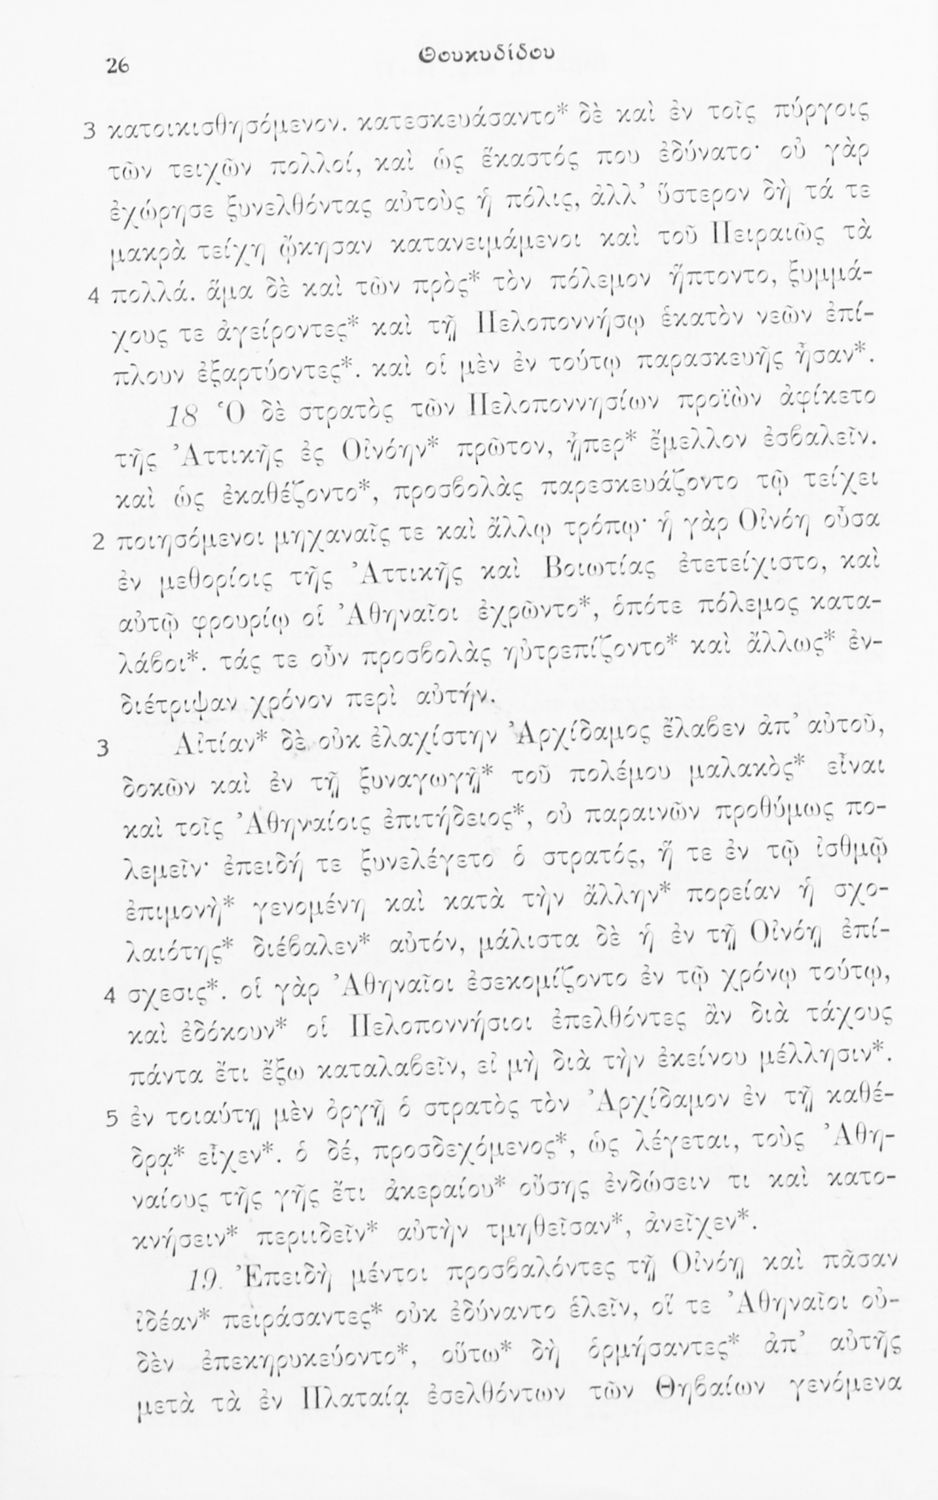 26
Θουκυδίδου
3 κατοικισθησόμενον. κατεσκευάσαντο* δὲ καὶ ἐν τοῖς πύργοις
τῶν τειχῶν πολλοί, καὶ ὡς ἕκαστός που ἐδύνατο· οὐ γὰρ
ἐχώρησε ξυνελθόντας αὐτοὺς ἡ πόλις, ἀλλ' ὕστερον δὴ τά τε
μακρὰ τείχη ᾤκησαν κατανειμάμενοι καὶ τοῦ Πειραιῶς τὰ
4 πολλά. ἅμα δὲ καὶ τῶν πρὸς* τὸν πόλεμον ἥπτοντο, ξυμμά-
χους τε ἀγείροντες* καὶ τῇ Πελοποννήσῳ ἑκατὸν νεῶν ἐπί-
πλουν ἐξαρτύοντες*. καὶ οἱ μὲν ἐν τούτῳ παρασκευῆς ἦσαν*.
18 Ὁ δὲ στρατὸς τῶν Πελοποννησίων προϊὼν ἀφίκετο
τῆς Ἀττικῆς ἐς Οἰνόην* πρῶτον, ᾗπερ* ἔμελλον ἐσβαλεῖν.
καὶ ὡς ἐκαθέζοντο*, προσβολὰς παρεσκευάζοντο τῷ τείχει
2 ποιησόμενοι μηχαναῖς τε καὶ ἄλλῳ τρόπῳ· ἡ γὰρ Οἰνόη οὖσα
ἐν μεθορίοις τῆς Ἀττικῆς καὶ Βοιωτίας ἐτετείχιστο, καὶ
αὐτῷ φρουρίῳ οἱ Ἀθηναῖοι ἐχρῶντο*, ὁπότε πόλεμος κατα-
λάβοι*. τάς τε οὖν προσβολὰς ηὐτρεπίζοντο* καὶ ἄλλως* ἐν-
διέτριψαν χρόνον περὶ αὐτήν.
3 Αἰτίαν* δὲ οὐκ ἐλαχίστην Ἀρχίδαμος ἔλαβεν ἀπ' αὐτοῦ,
δοκῶν καὶ ἐν τῇ ξυναγωγῇ* τοῦ πολέμου μαλακὸς* εἶναι
καὶ τοῖς Ἀθηναίοις ἐπιτήδειος*, οὐ παραινῶν προθύμως πο-
λεμεῖν· ἐπειδή τε ξυνελέγετο ὁ στρατός, ἥ τε ἐν τῷ ἰσθμῷ
ἐπιμονὴ* γενομένη καὶ κατὰ τὴν ἄλλην* πορείαν ἡ σχο-
λαιότης* διέβαλεν* αὐτόν, μάλιστα δὲ ἡ ἐν τῇ Οἰνόῃ ἐπί-
4 σχεσις*. οἱ γὰρ Ἀθηναῖοι ἐσεκομίζοντο ἐν τῷ χρόνῳ τούτῳ,
καὶ ἐδόκουν* οἱ Πελοποννήσιοι ἐπελθόντες ἂν διὰ τάχους
πάντα ἔτι ἔξω καταλαβεῖν, εἰ μὴ διὰ τὴν ἐκείνου μέλλησιν*.
5 ἐν τοιαύτῃ μὲν ὀργῇ ὁ στρατὸς τὸν Ἀρχίδαμον ἐν τῇ καθέ-
δρᾳ* εἶχεν*. ὁ δέ, προσδεχόμενος*, ὡς λέγεται, τοὺς Ἀθη-
ναίους τῆς γῆς ἔτι ἀκεραίου* οὔσης ἐνδώσειν τι καὶ κατο-
κνήσειν* περιιδεῖν* αὐτὴν τμηθεῖσαν*, ἀνεῖχεν*.
19. Ἐπειδὴ μέντοι προσβαλόντες τῇ Οἰνόῃ καὶ πᾶσαν
ἰδέαν* πειράσαντες* οὐκ ἐδύναντο ἑλεῖν, οἵ τε Ἀθηναῖοι οὐ-
δὲν ἐπεκηρυκεύοντο*, οὕτω* δὴ ὁρμήσαντες* ἀπ' αὐτῆς
μετὰ τὰ ἐν Πλαταίᾳ ἐσελθόντων τῶν Θηβαίων γενόμενα